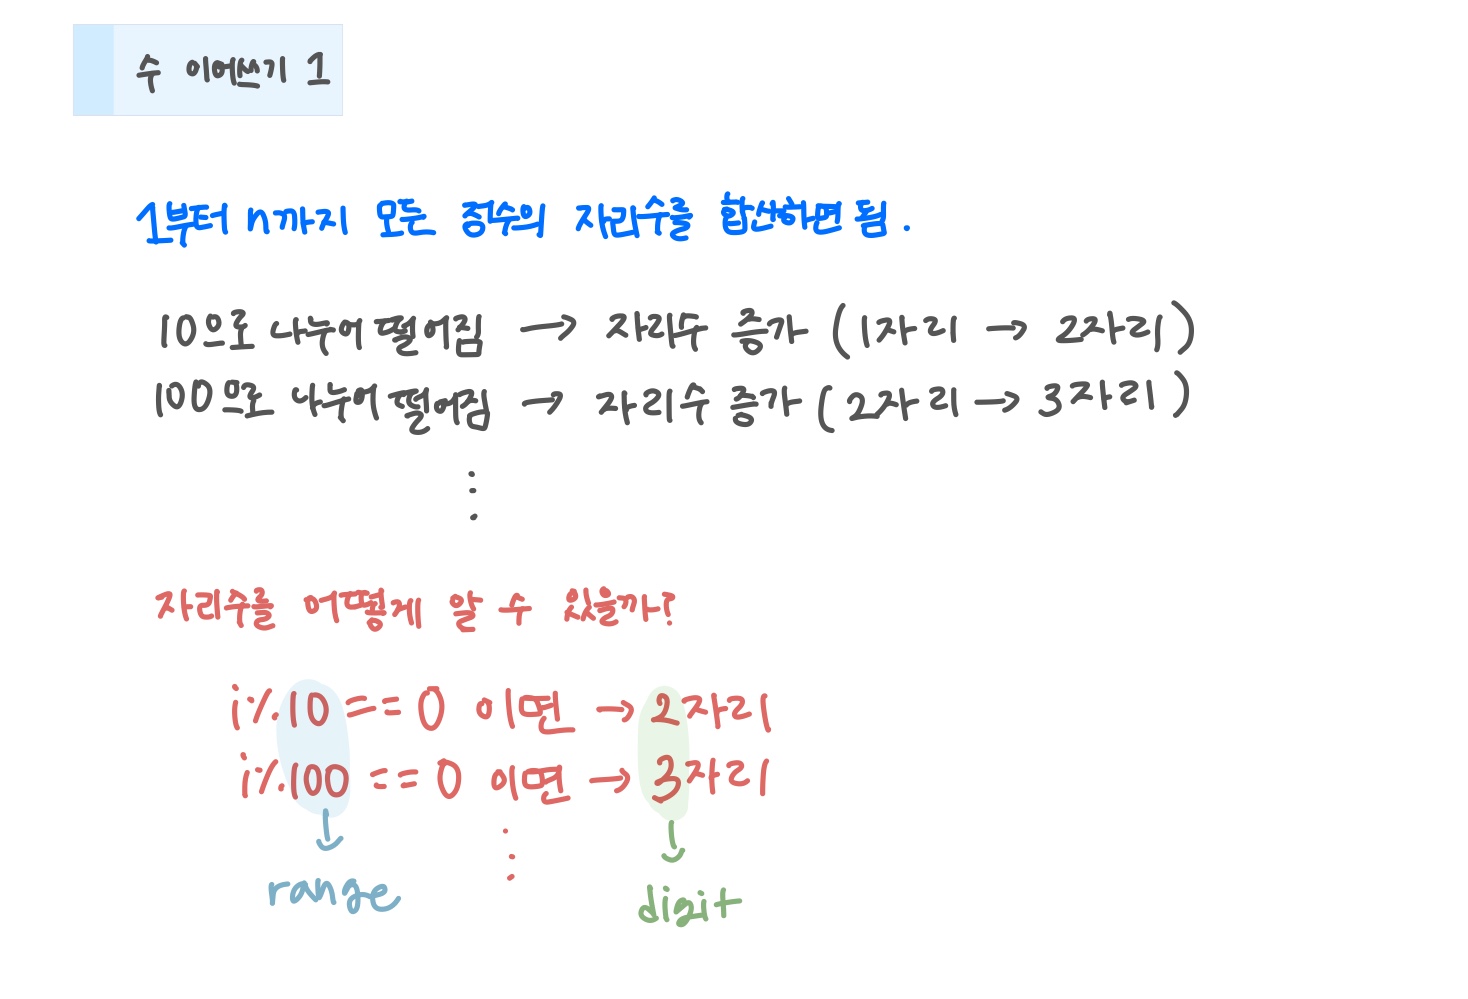 수 이어쓰기 1
1부터 n까지 모든 정수의 자리수를 합산하면 됨.
10으로 나누어 떨어짐 → 자리수 증가 (1자리 → 2자리)
100으로 나누어 떨어짐 → 자리수 증가 (2자리 → 3자리)
⋮
자리수를 어떻게 알 수 있을까?
i%10 == 0 이면 → 2자리
i%100 == 0 이면 → 3자리
⋮
range digit